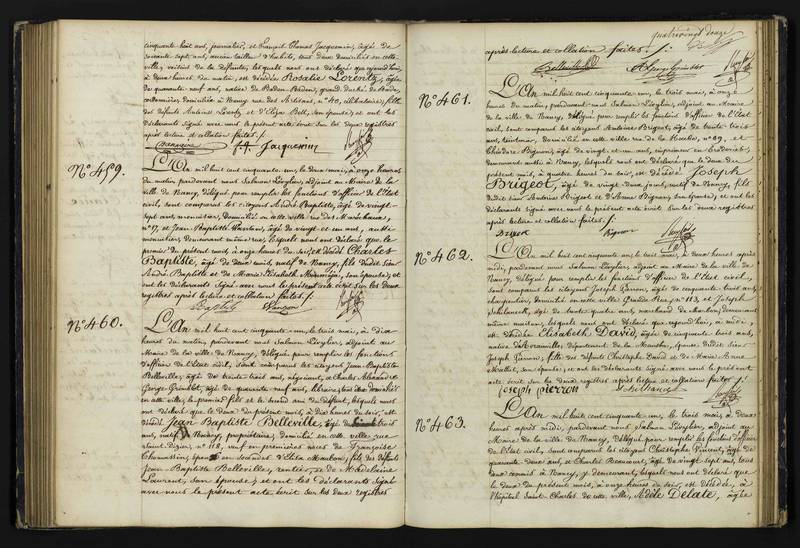 cinquante huit ans, journalier, et François Thomas Jacquemin, âgé de
cinquante sept ans, ancien tailleur d'habits, tous deux domiciliés en cette
ville, voisins de la défunte, lesquels nous ont déclaré que aujourd'hui,
à deux heures du matin, est décédée Rosalie Lorentz, âgée
de quarante neuf ans, native de Baden-Baden, grand duché de Bade,
cordonnière, domiciliée à Nancy rue des Artisans, n° 40, célibataire, fille
des défunts Antoine Lorentz et d'Eliza Bell, son épouse; et ont les
déclarants signé avec nous le présent acte écrit sur les deux registres
après lecture et collation faites./.
Jacquemin
N° 459.
L'An mil huit cent cinquante-un, le deux mai, à onze heures
du matin, pardevant nous Salmon Lévylier, adjoint au Maire de la
ville de Nancy, délégué pour remplir les fonctions d'officier de l'Etat
civil, sont comparus les citoyens André Baptiste, âgé de vingt-
sept ans, menuisier, domicilié en cette ville rue des Maréchaux,
n° 17, et Jean Baptiste, âgé de vingt et un ans, aussi
menuisier, demeurant même rue, lesquels nous ont déclaré que le
premier du présent mois, à onze heures du soir, est décédé Charles
Baptiste, âgé de deux mois, natif de Nancy, fils dudit sieur
André Baptiste et de Marie Elisabeth, son épouse; et
ont les déclarants signé avec nous le présent acte écrit sur les deux
registres après lecture et collation faites./.
Baptiste
N° 460.
L'An mil huit cent cinquante-un, le trois mai, à dix
heures du matin, pardevant nous Salmon Lévylier, adjoint au
Maire de la ville de Nancy, délégué pour remplir les fonctions
d'officier de l'Etat civil, sont comparus les citoyens Jean-Baptiste
Belleville, âgé de trente trois ans, négociant, et Charles Alexandre
George Grimblot, âgé de quarante neuf ans, libraire, tous deux domiciliés
en cette ville, le premier fils et le second ami du défunt, lesquels nous
ont déclaré que le deux du présent mois, à dix heures du soir, est
décédé Jean Baptiste Belleville, âgé de trois
ans, natif de Nancy, propriétaire, domicilié en cette ville rue
Saint Dizier, n° 118, veuf en premières noces de Françoise
époux en secondes d'Elisa; fils des défunts
Jean Baptiste Belleville, rentier, et de Madeleine
Laurent, son épouse; et ont les déclarants signé
avec nous le présent acte écrit sur les deux registres
quatrevingt douze
après lecture et collation faites./.
N° 461.
L'An mil huit cent cinquante-un, le trois mai, à onze
heures du matin, pardevant nous Salmon Lévylier, adjoint au Maire
de la ville de Nancy, délégué pour remplir les fonctions d'officier de l'Etat
civil, sont comparus les citoyens Antoine Brigeot, âgé de trente trois
ans, domicilié en cette ville rue de la Hache, n° 69, et
Théodore Pignon, âgé de vingt et un ans,
demeurant aussi à Nancy, lesquels nous ont déclaré que le deux du
présent mois, à quatre heures du soir, est décédé Joseph
Brigeot, âgé de vingt deux jours, natif de Nancy, fils
dudit sieur Antoine Brigeot et d'Anne Pignon, son épouse; et ont les
déclarants signé avec nous le présent acte écrit sur les deux registres
après lecture et collation faites./.
Pignon
N° 462.
L'An mil huit cent cinquante-un, le trois mai, à deux heures après
midi, pardevant nous Salmon Lévylier, adjoint au Maire de la ville de
Nancy, délégué pour remplir les fonctions d'officier de l'Etat civil,
sont comparus les citoyens Joseph Pierron, âgé de cinquante trois ans,
charpentier, domicilié en cette ville Grande Rue, n° 113, et Joseph
âgé de trente quatre ans, marchand de marbre, demeurant
même maison, lesquels nous ont déclaré que aujourd'hui, à midi,
est décédée Elisabeth David, âgée de cinquante trois ans,
native d'Arrainville, département de la Meurthe, épouse dudit sieur
Joseph Pierron; fille des défunts Christophe David et de Marie Anne
son épouse; et ont les déclarants signé avec nous le présent
acte écrit sur les deux registres après lecture et collation faites./.
joseph pierron
N° 463.
L'An mil huit cent cinquante-un, le trois mai, à deux
heures après midi, pardevant nous Salmon Lévylier, adjoint au
Maire de la ville de Nancy, délégué pour remplir les fonctions d'officier
de l'Etat civil, sont comparus les citoyens Christophe Vincent, âgé de
quarante deux ans, et Charles Beaucourt, âgé de vingt sept ans, tous
deux commis à Nancy, y demeurant, lesquels nous ont déclaré que
le deux du présent mois, à onze heures du soir, est décédée, à
l'hôpital Saint Charles de cette ville, Adèle Delate, âgée